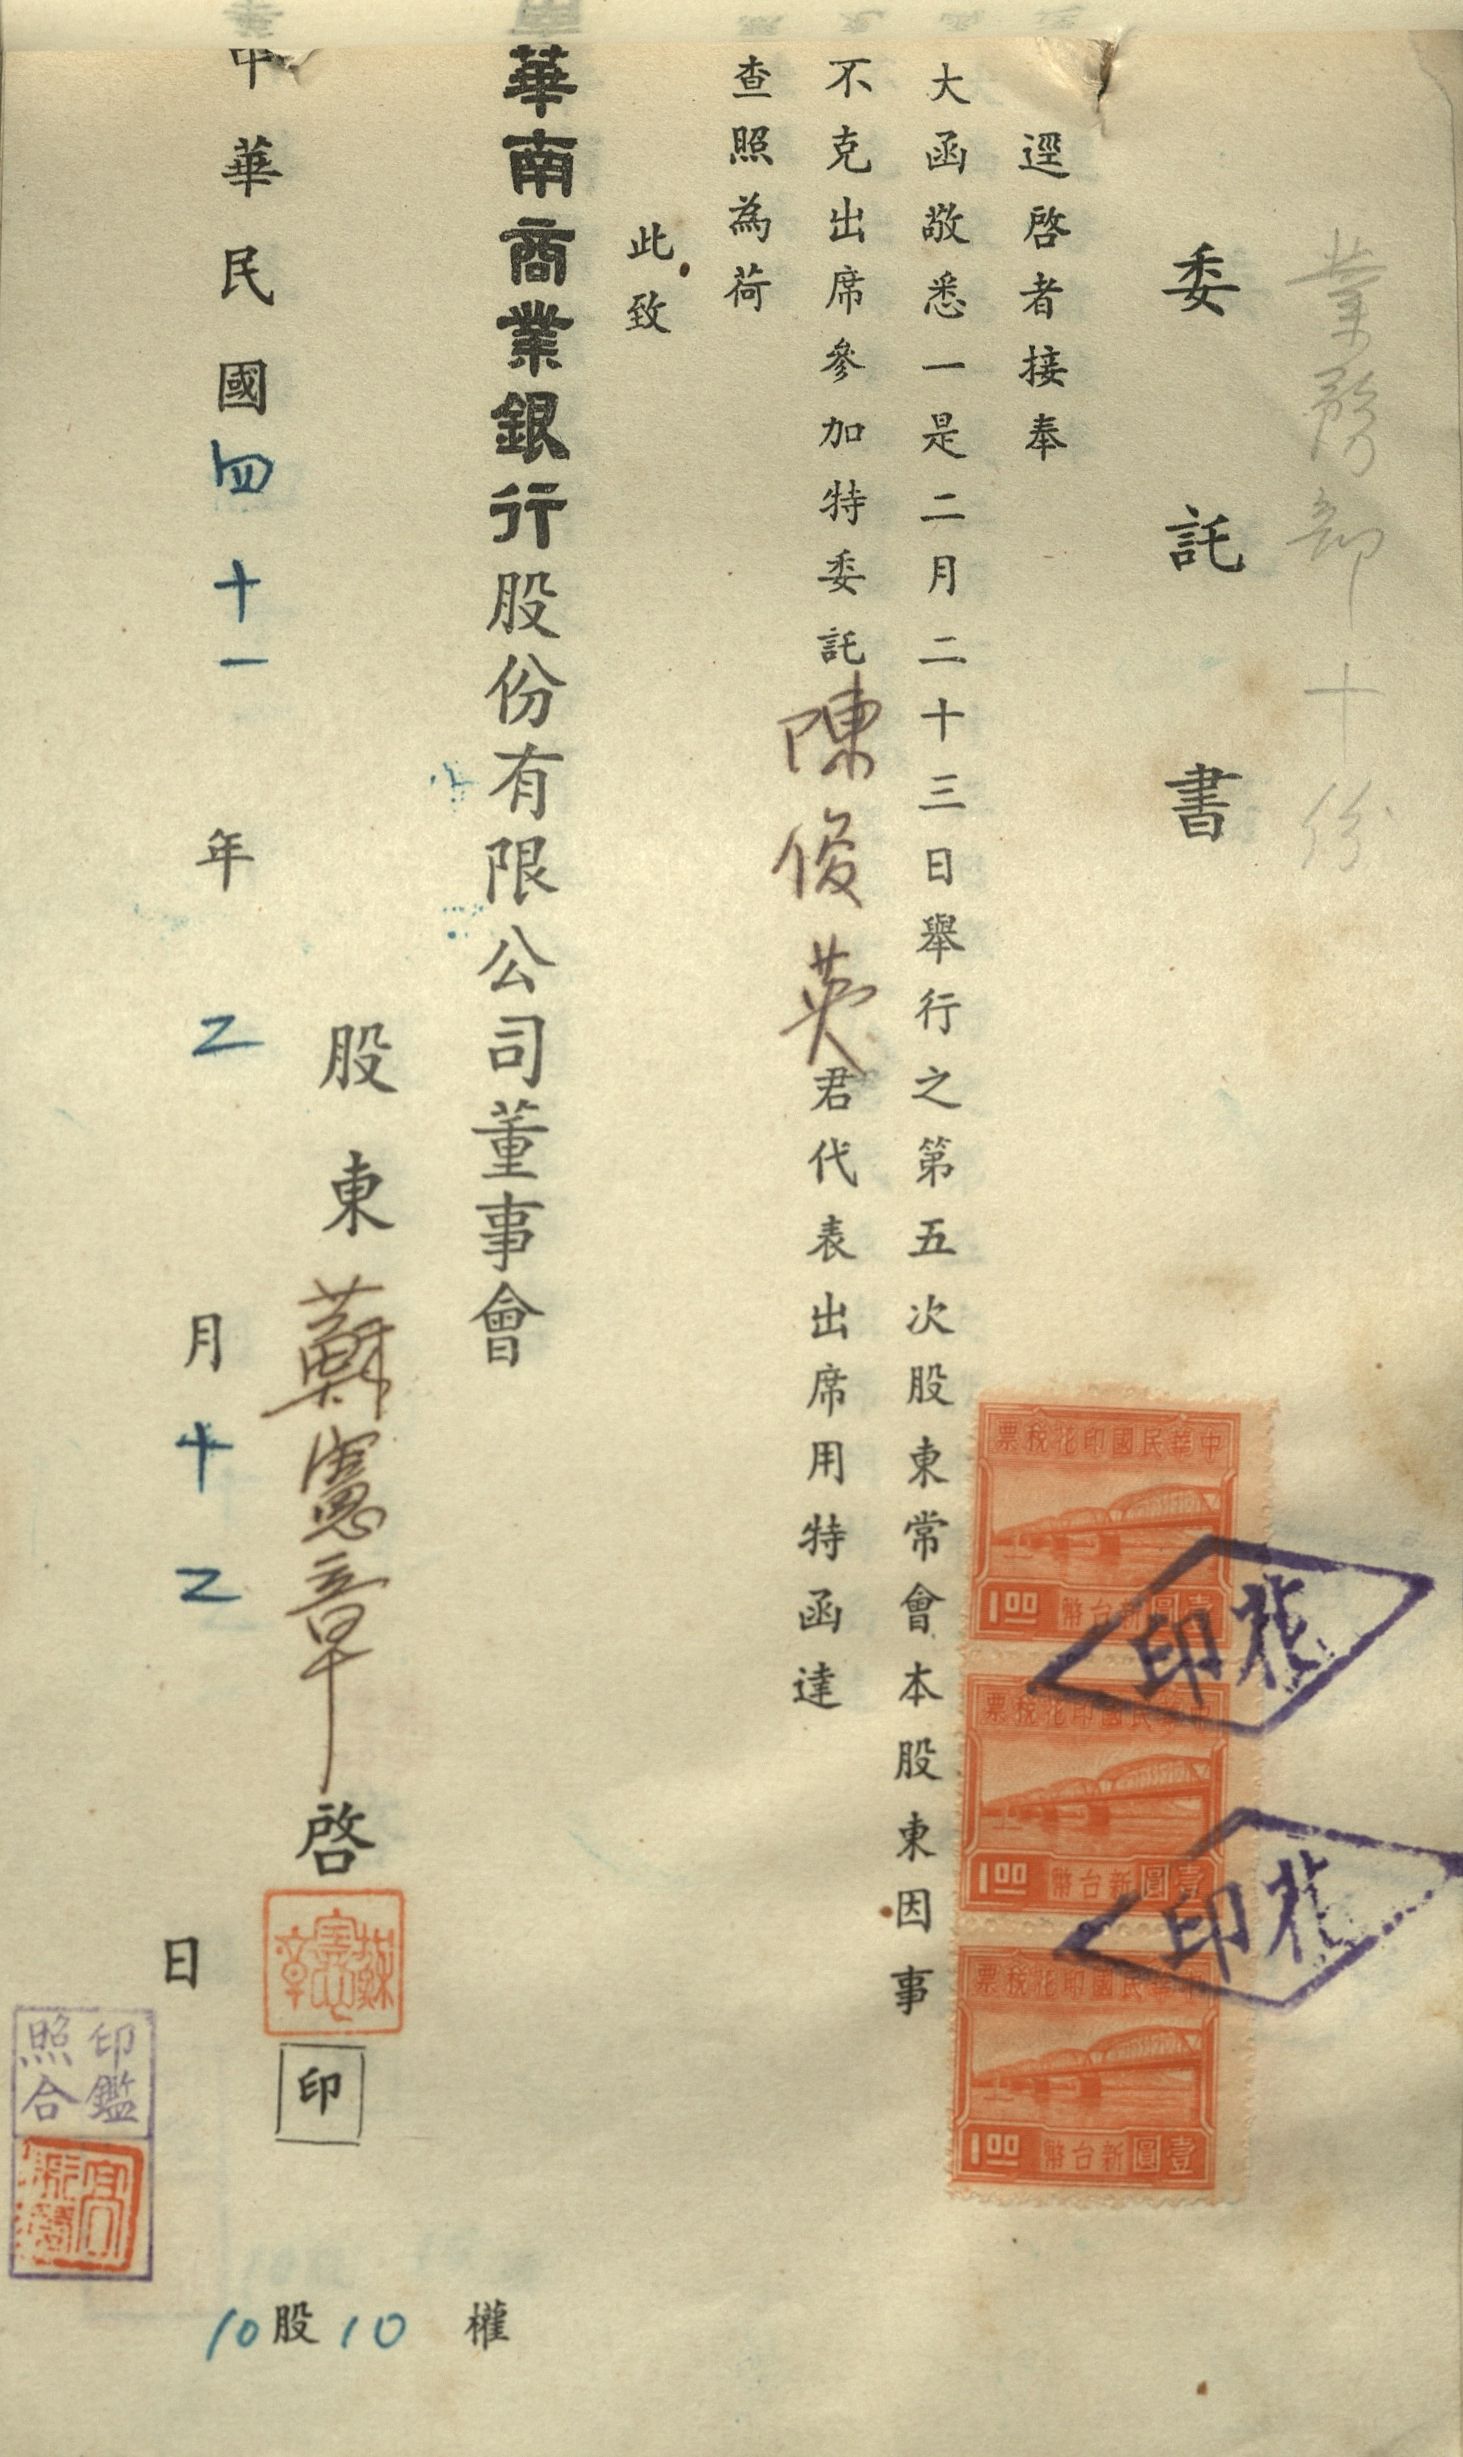 業務部十份
委託書
逕啓者接奉
大函敬悉一是二月二十三日舉行之第五次股東常會本股東因事
不克出席參加特委託陳俊英君代表出席用特函達
查照為荷
此致
華南商業銀行股份有限公司董事會
股東蘇憲章啓
蘇憲章
印
中華民國四十一年二月十二日
10股10權
印鑑
照合
中華民國印花稅票
壹圓新台幣
1.00
中華民國印花稅票
壹圓新台幣
1.00
中華民國印花稅票
壹圓新台幣
1.00
印花
印花